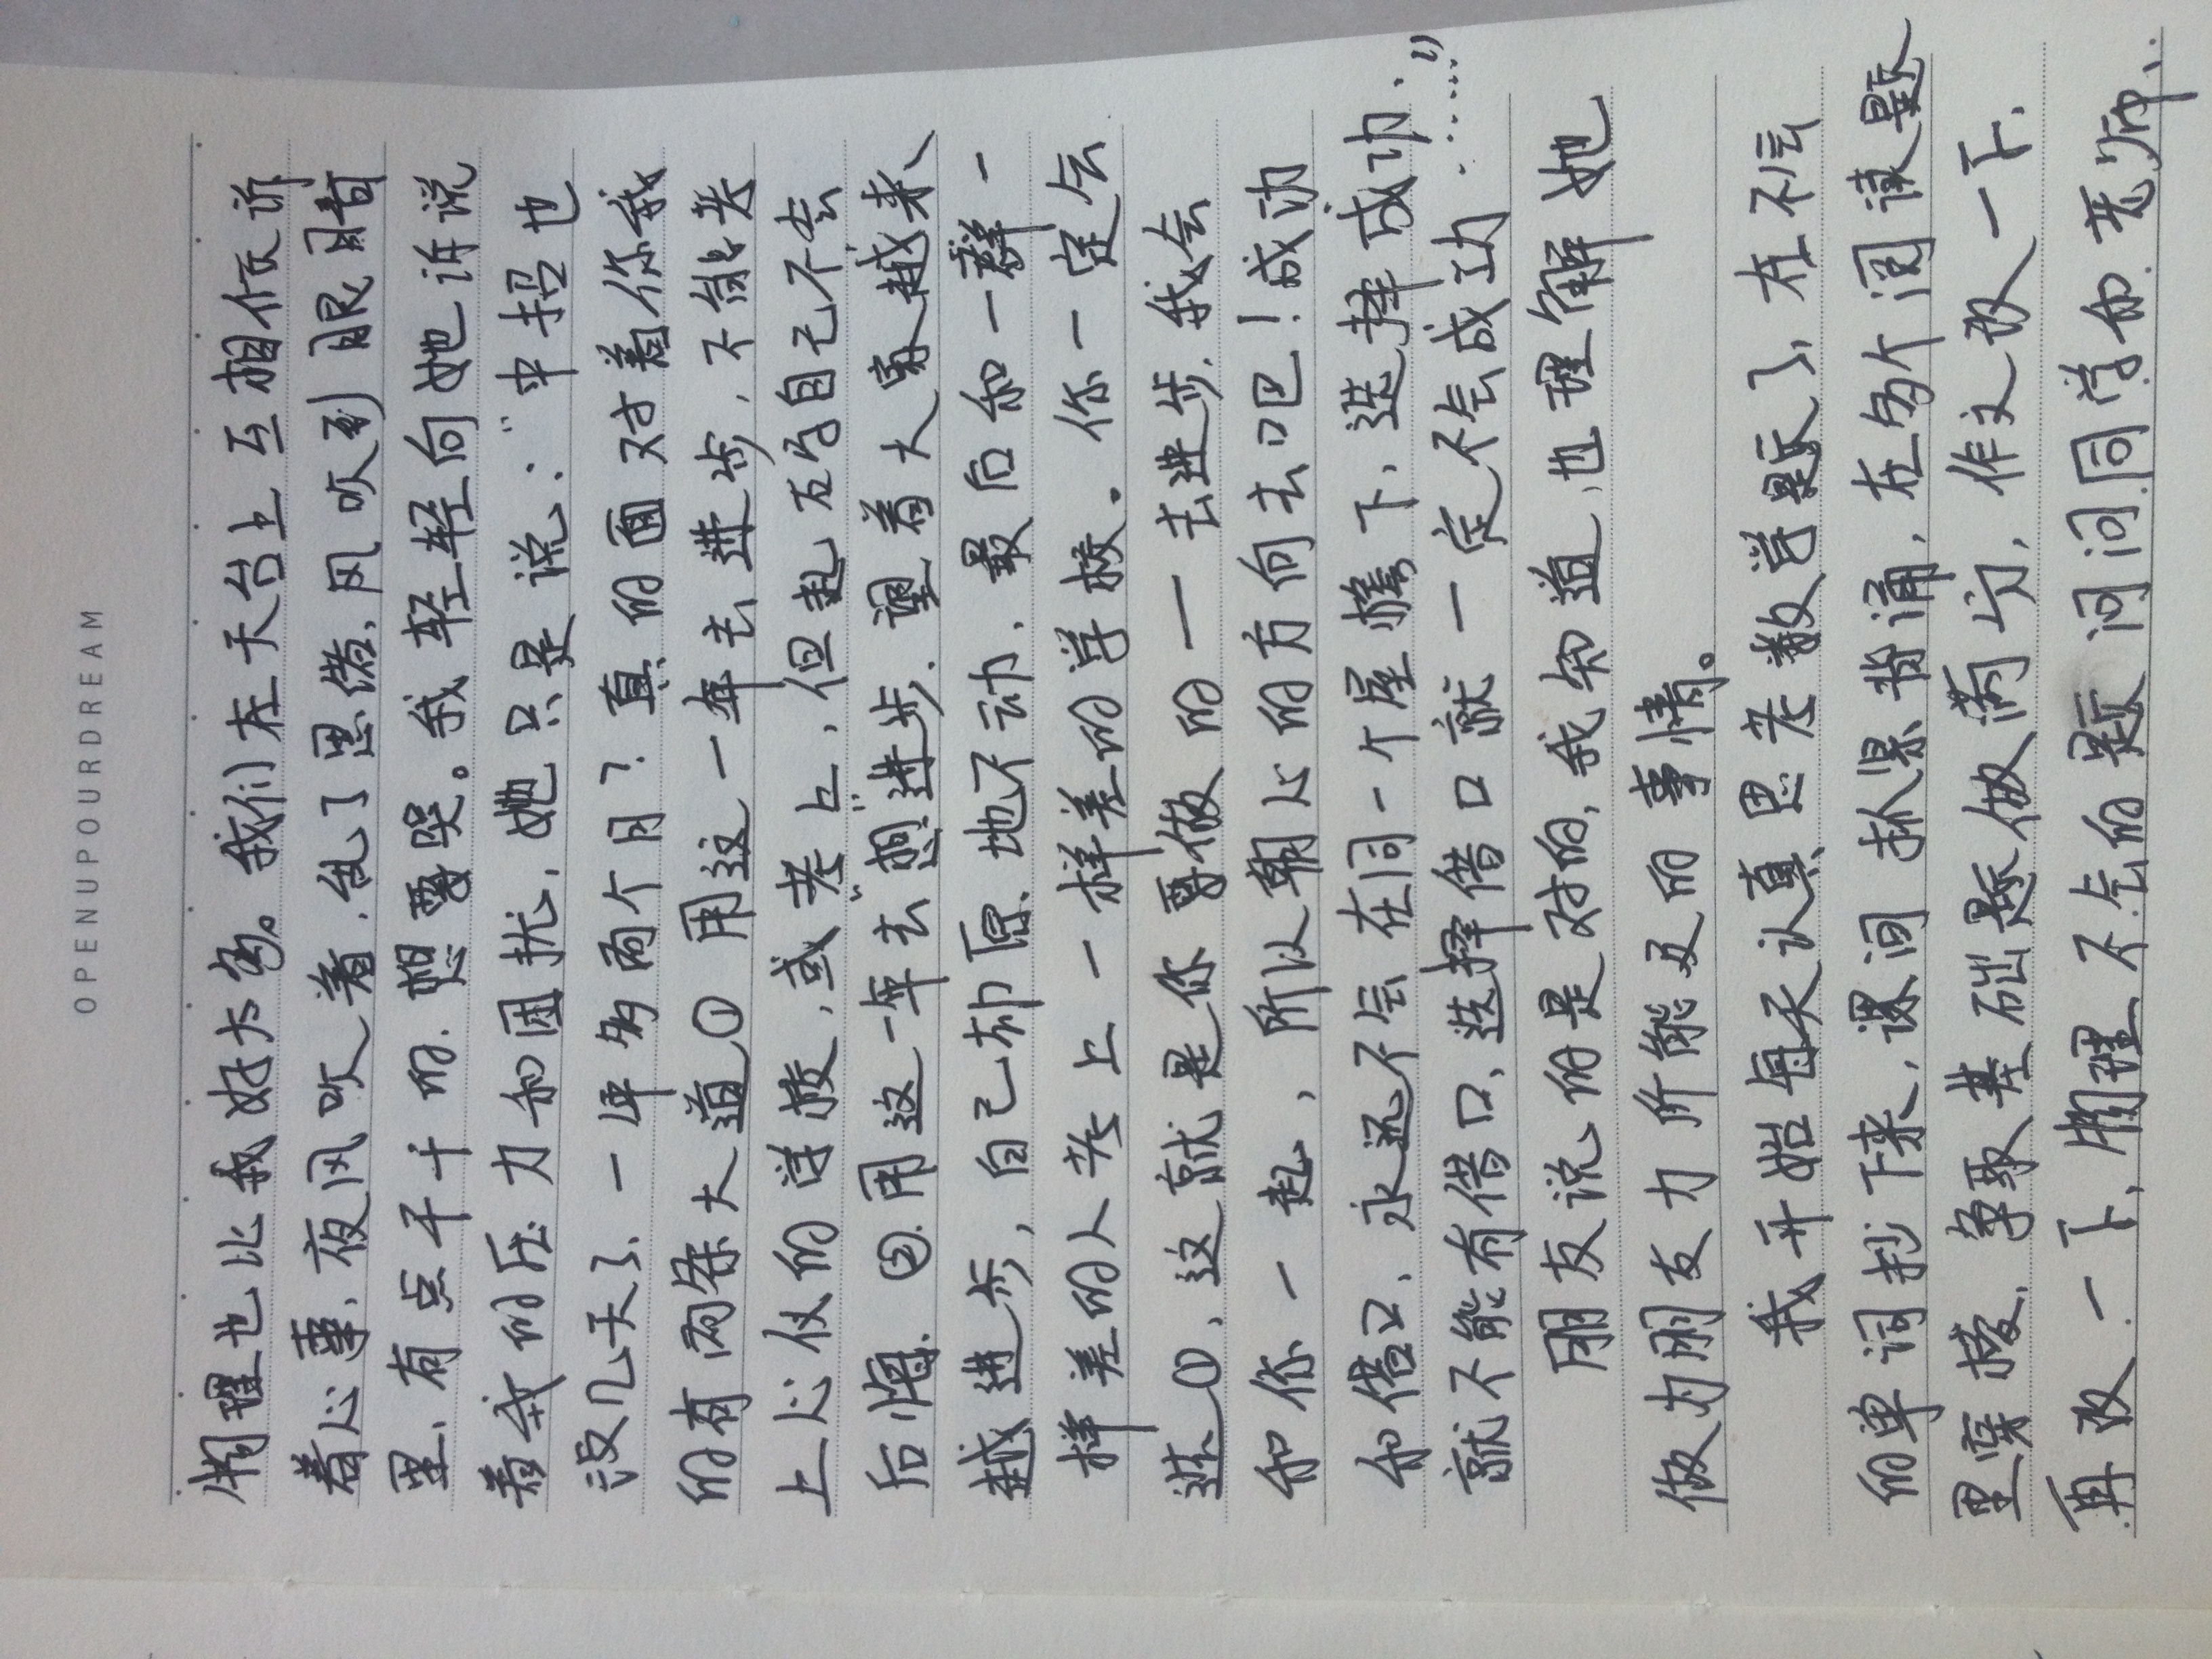 OPENUPOURDREAM
物理也比我好太多。我们在天台上互相倾诉
着心事，夜风吹着，乱了思绪，风吹到眼睛
里，有点干干的，想要哭。我轻轻向她诉说
着我的压力和困扰，她只是说："中招也
没几天了，一年多两个月？真的面对着你我
的有两条大道①用这一年去进步，不能考
上心仪的学校，或考上，但起码自己不会
后悔。②用这一年去"想"进步，望着大家越来、
越进步，自己却原地不动，最后和一群一
样差的人考上一样差的学校。你一定会
选①，这就是你要做的一去进步，我会
和你一起，所以朝心的方向去吧！成功
和借口，永远不会在同一个屋檐下，选择成功，
就不能有借口，选择借口就一定不会成功……"
朋友说的是对的，我知道，也理解她
做为朋友力所能及的事情。
我开始每天认真思考数学题了，在不会
的单词抄下来，课间抓紧背诵，在每个阅读题
里突破，争取基础题做满分，作文改一下，
再改一下，物理不会的题问问同学和老师、..